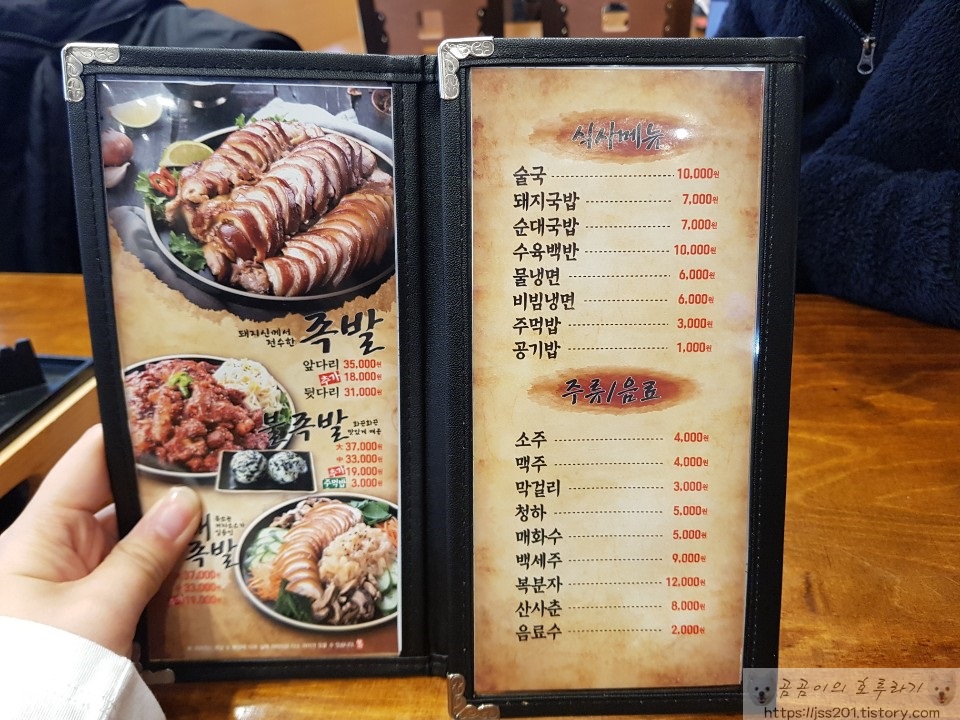 돼지신께서
전수한
족발
앞다리 35,000원
추가 18,000원
뒷다리 31,000원
불족발
화끈화끈
맛있게 매운
大 37,000원
中 33,000원
추가 19,000원
주먹밥 3,000원
족발
37,000원
33,000원
19,000원
식사메뉴
술국 10,000원
돼지국밥 7,000원
순대국밥 7,000원
수육백반 10,000원
물냉면 6,000원
비빔냉면 6,000원
주먹밥 3,000원
공기밥 1,000원
주류/음료
소주 4,000원
맥주 4,000원
막걸리 3,000원
청하 5,000원
매화수 5,000원
백세주 9,000원
복분자 12,000원
산사춘 8,000원
음료수 2,000원
곰곰이의 호루라기
https://jss201.tistory.com